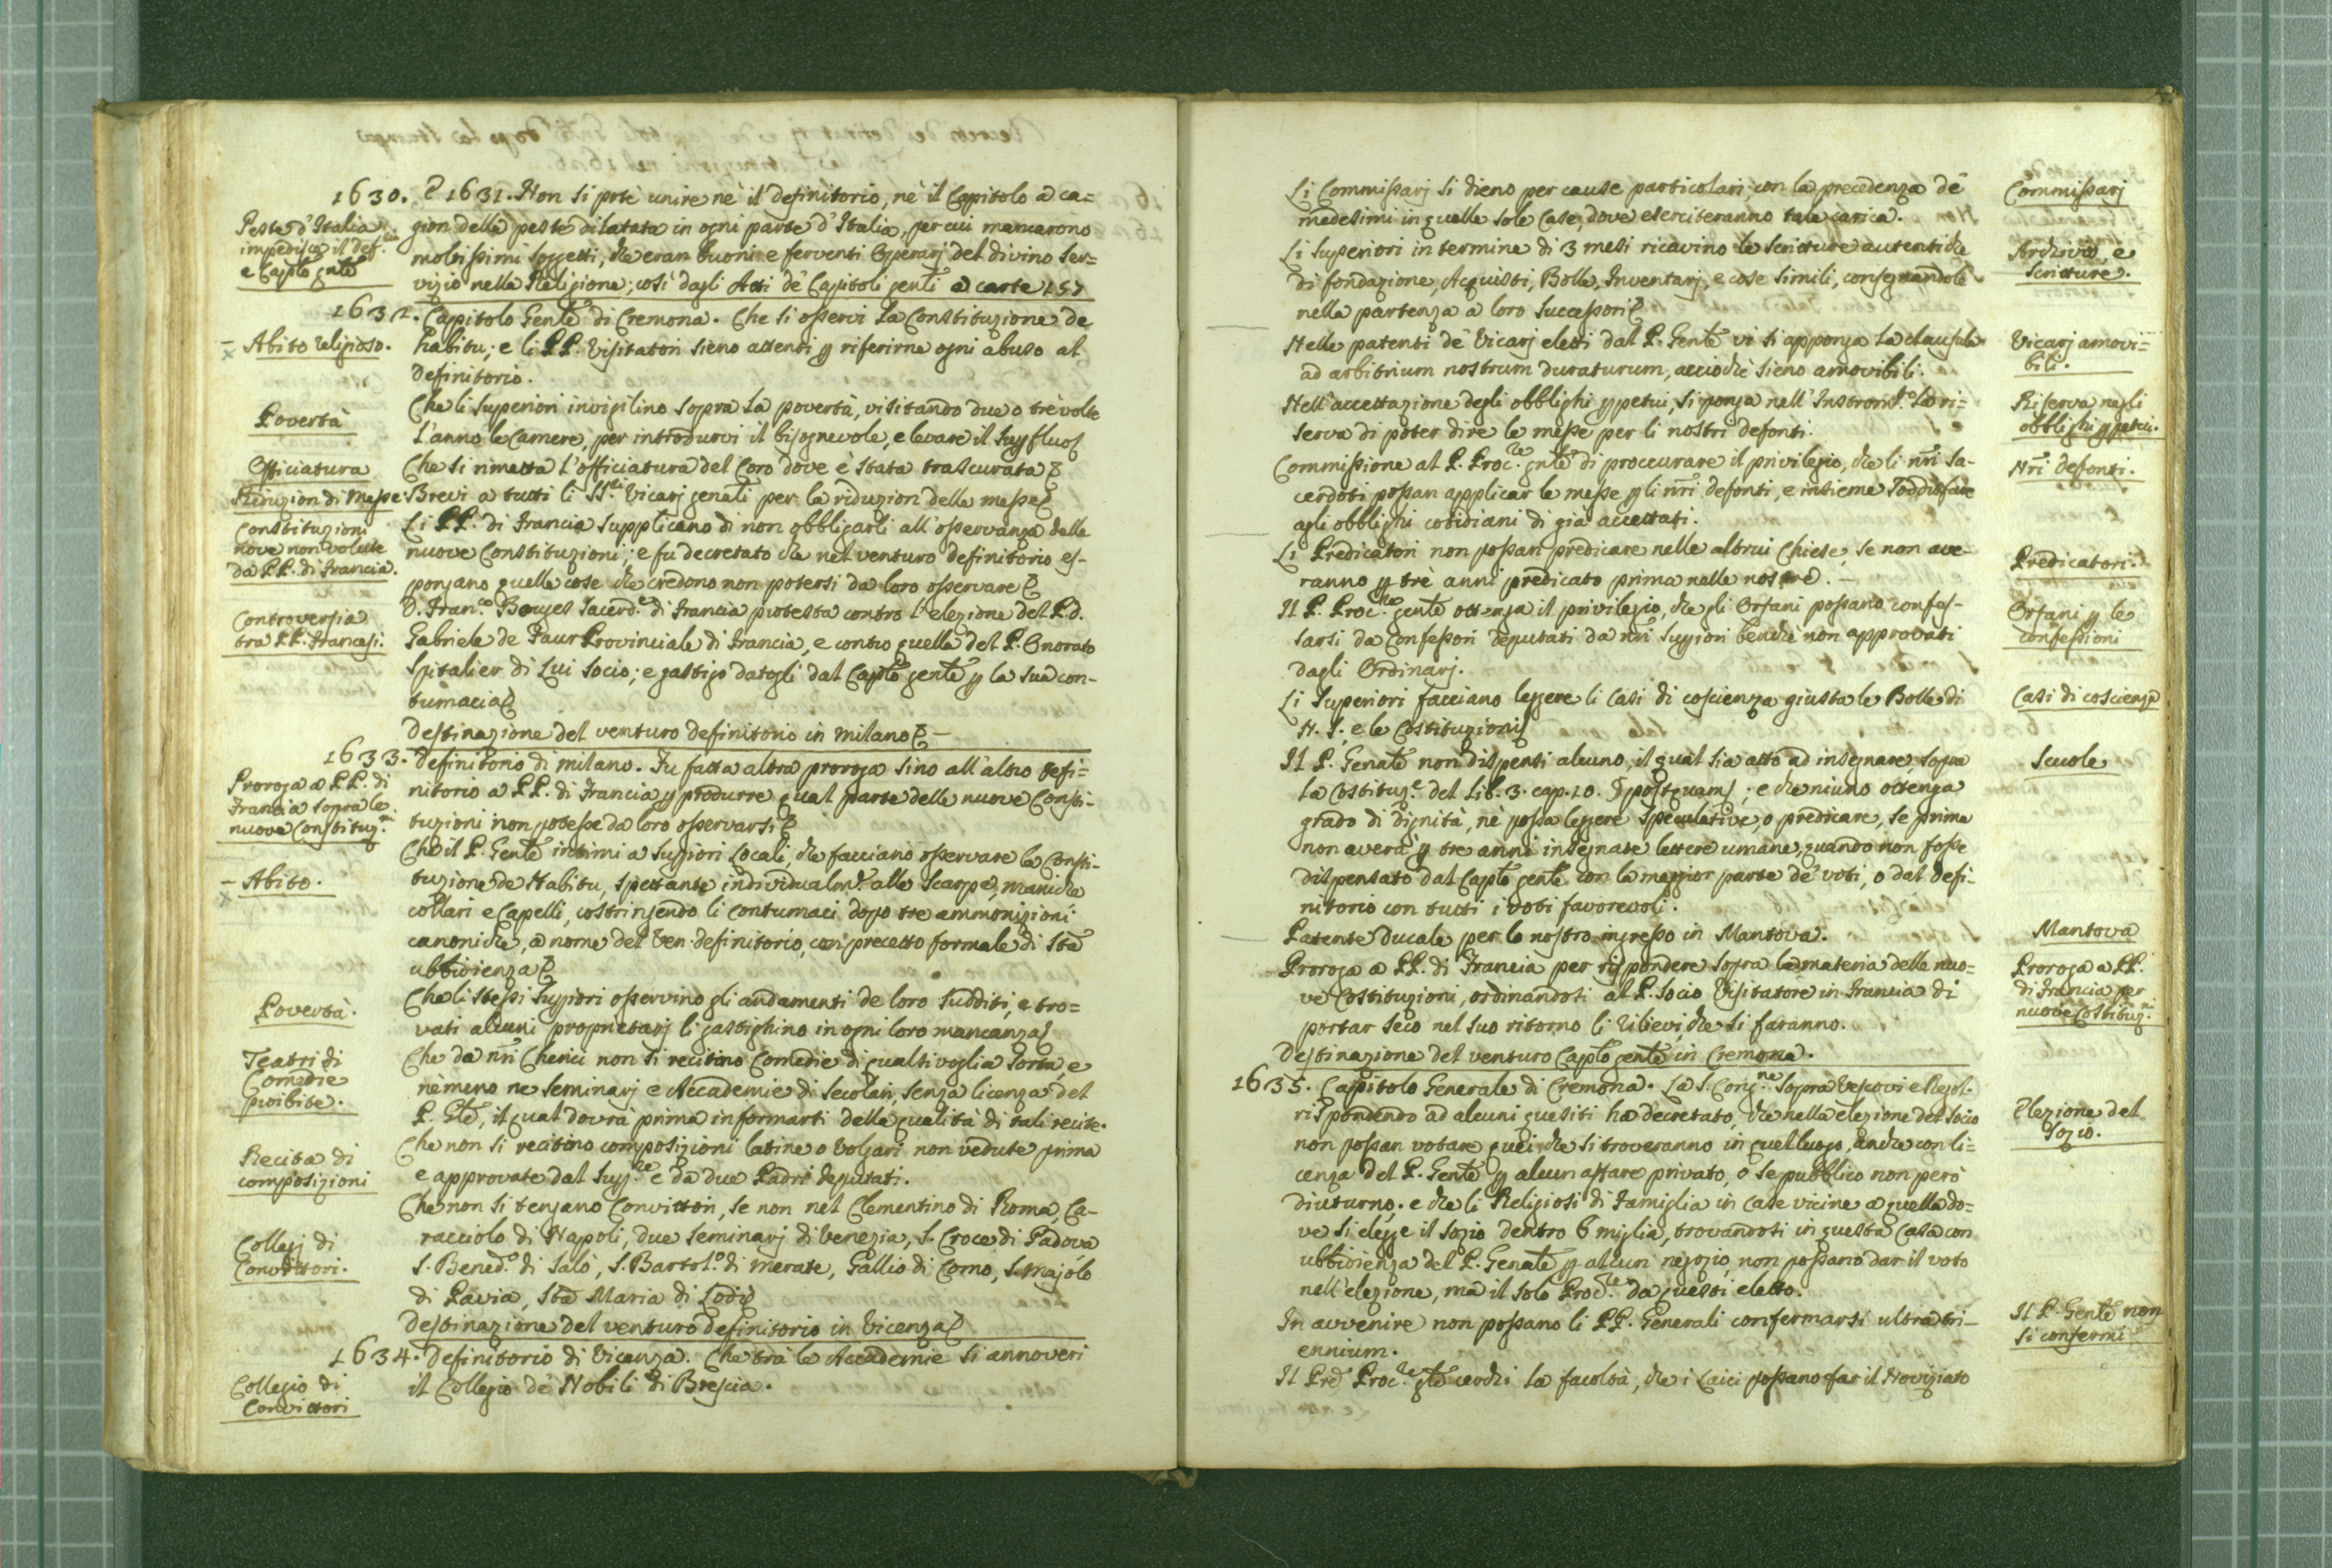 1630. E 1631. Non si potè unire nè il definitorio, nè il Capitolo a ca=
Peste d'Italia
impedisce il def.rio
e Capto gnle
gion della peste dilatata in ogni parte d'Italia, per cui mancarono
moltissimi soggetti, che eran buoni e ferventi Operarj del divino ser=
vizio nella Religione; così dagli Atti de' Capitoli genli a carte 157
1632. Capitolo Genle di Cremona. Che si osservi la Constituzione de
– Abito religioso.
habitu; e li PP. Visitatori sieno attenti p riferirne ogni abuso al
definitorio.
Povertà
Che li Superiori invigilino sopra la povertà, visitando due o trè volte
l'anno le Camere, per introdurvi il bisognevole, e levare il supfluo
Officiatura
Che si rimetta l'officiatura del Coro dove è stata trascurata
Riduzion di Messe
Brevi a tutti li SS.ri Vicarj genali per la riduzion delle messe
Constituzioni
nove non volute
da PP. di Francia.
Li PP. di Francia supplicano di non obbligarli all'osservanza delle
nuove Constituzioni; e fu decretato che nel venturo definitorio es-
pongano quelle cose che credono non potersi da loro osservare
Controversia
tra PP. Francesi.
D. Fran.co Bouges Sacerd.e di Francia protesta contro l'elezione del P.D.
Gabriele de Faur Provinciale di Francia, e contro quella del P. Onorato
Spitalier di lui socio; e gastigo datogli dal Capto gente p la sua con-
tumacia
Destinazione del venturo definitorio in Milano –
1633. Definitorio di Milano. Fu fatta altra proroga sino all'altro defi=
Proroga a PP. di
Francia sopra le
nuove Constituz.ni
nitorio a PP. di Francia p produrre qual parte delle nuove Consti-
tuzioni non potesse da loro osservarsi
Che il P. Genle intimi a Supriori Locali, che facciano osservare la Consti-
– Abito.
tuzione de Habitu, spettante individualm.e alle scarpe, maniche
collari e Capelli, costringendo li contumaci dopo tre ammonizioni
canoniche, a nome del Ven. definitorio, con precetto formale di Sta
ubbidienza
Povertà.
Che li stessi Supriori osservino gli andamenti de loro sudditi, e tro=
vati alcuni proprietarj li gastighino in ogni loro mancanza
Teatri di
Comedie
proibite.
Che da nri Cherici non si recitino Comedie di qualsivoglia sorta, e
nè meno ne Seminarj e Accademie di secolari, senza licenza del
P. Gle, il qual dovrà prima informarsi della qualità di tali recite.
Recita di
composizioni
Che non si recitino composizioni latine o volgari non vedute prima
e approvate dal Sup.re e da due Padri deputati.
Collegj di
Convittori.
Che non si tengano Convittori, se non nel Clementino di Roma, Ca-
racciolo di Napoli, due Seminarj di Venezia, S. Croce di Padova
S. Bened.o di Salò, S. Bartol.o di Merate, Gallio di Como, S. Majolo
di Pavia, Sta Maria di Lodi
Destinazione del venturo definitorio in Vicenza
1634. Definitorio di Vicenza. Che trà le Accademie si annoveri
Collegio di
Convittori
il Collegio de Nobili di Brescia.
Li Commissarj si dieno per cause particolari, con la precedenza de
Commissarj
medesimi in quelle sole Case, dove eserciteranno tale carica.
Li Superiori in termine di 3 mesi ricavino le scritture autentiche
Archivio, e
Scritture.
di fondazione, Acquisti, Bolle, Inventarj, e cose simili, consegnandole
nella partenza a loro successori
Nelle patenti de Vicarj eletti dal P. Genle vi si apponga la clausula
Vicarj amovi=
bili.
ad arbitrium nostrum duraturum, acciochè sieno amovibili.
Nell'accettazione degli obblighi ppetui, si ponga nell'Instrom.o la ri=
Riserva negli
obblighi ppetui.
serva di poter dire le messe per li nostri defonti.
Commissione al P. Proc.re gnle di proccurare il privilegio, che li nri Sa-
Nri defonti.
cerdoti possan applicar le messe p li nri defonti, e insieme soddisfare
agli obblighi cotidiani di già accettati.
Li Predicatori non possan predicare nelle altrui Chiese, se non ave-
Predicatori.
ranno p trè anni predicato prima nelle nostre. –
Il P. Proc.re genle ottenga il privilegio, che gli Orfani possano confes-
Orfani p le
confessioni
sarsi da Confessori deputati da nri Suppiori benchè non approvati
dagli Ordinarj.
Li Superiori facciano leggere li Casi di coscienza giusta le Bolle di
Casi di coscienza
N. S. e le Costituzioni
Il P. Genale non dispensi alcuno, il qual sia atto ad insegnare, sopra
Scuole
la Costituz.e del Lib. 3. cap. 10. § postquam; e che niuno ottenga
grado di dignità, nè possa leggere speculative, o predicare, se prima
non averà p tre anni insegnate lettere umane, quando non fosse
dispensato dal Capto genle con la maggior parte de' voti, o dal defi-
nitorio con tutti i voti favorevoli.
Patente Ducale per lo nostro ingresso in Mantova.
Mantova
Proroga a PP. di Francia per rispondere sopra la materia delle nuo=
Proroga a PP.
di Francia per
nuove Costituz.ni
ve Costituzioni, ordinandosi al P. Socio Visitatore in Francia di
portar seco nel suo ritorno li rilievi che si faranno.
Destinazione del venturo Capto genle in Cremona.
1635. Capitolo Generale di Cremona. La S. Cong.ne sopra Vescovi e Regol.
rispondendo ad alcuni quesiti ha decretato, che nella elezione del Socio
Elezione del
Sozio.
non possan votare quei che si troveranno in quel luogo, anche con li=
cenza del P. Genle p alcun affare privato, o se pubblico non però
diuturno. e che li Religiosi di Famiglia in Case vicine a quella do=
ve si elegge il sozio dentro 6 miglia, trovandosi in questa Casa con
ubbidienza del P. Genale p alcun negozio, non possano dar il voto
nell'elezione, ma il solo Proc.re da questi eletto.
In avvenire non possano li PP. Generali confermarsi ultra tri-
Il P. Genle non
si confermi
ennium.
Il Pred. Proc.re gle cerchi la facoltà, che i Laici possano far il Noviziato